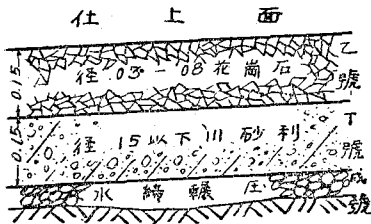 仕上面
0.15 径 03－08 花崗石 乙號
0.15 径 15 以下 川砂利 丁號
水締輾圧 戊號